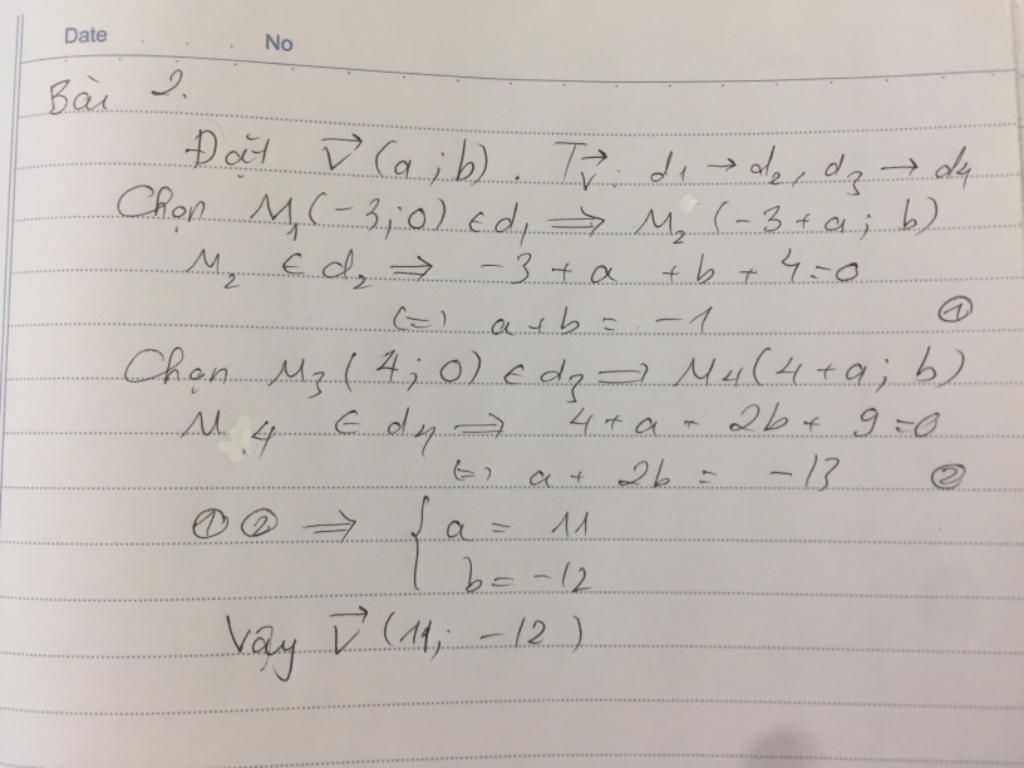 Date No
Bài 2.
Đặt v⃗ (a ; b) . Tv⃗ : d1 → d2, d3 → d4
Chọn M1 (-3 ; 0) ∈ d1 ⟹ M2 (-3 + a ; b)
M2 ∈ d2 ⟹ -3 + a + b + 4 = 0
(=) a + b = -1 ①
Chọn M3 ( 4 ; 0) ∈ d3 ⟹ M4 (4 + a ; b)
M4 ∈ d4 ⟹ 4 + a + 2b + 9 = 0
(=) a + 2b = -13 ②
① ② ⟹ { a = 11
b = -12
Vậy v⃗ (11; -12 )